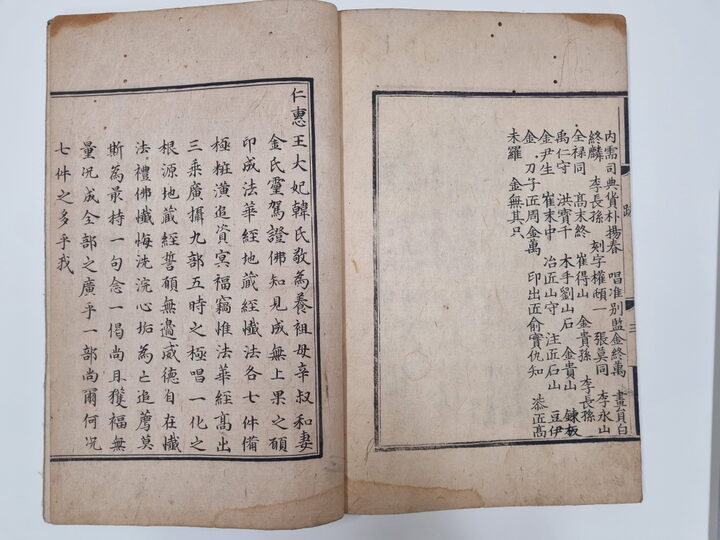 內需司典貨朴揚春 唱准別監金終萬 畫員白
終麟 李長孫 刻字權頓一 張莫同 李永山
全祿同 高末終 崔得山 金貴孫 李長孫
禹仁守 洪寶千 木手劉山石 金貴山 鍊板
金尹生 崔末中 冶匠山守 注匠石山 豆伊
金 刀子匠周金萬 印出匠俞實仇知 漆匠高
未羅 金無其只
跋
三
仁惠王大妃韓氏敬為養祖母辛叔和妻
金氏靈駕證佛知見成無上果之願
印成法華經地藏經懺法各七件備
極粧潢追資冥福竊惟法華經高出
三乘廣攝九部五時之極唱一化之
根源地藏經誓願無邊威德自在懺
法禮佛懺悔洗浣心垢為亡追薦莫
斯為最持一句念一偈尚且獲福無
量况成全部之廣乎一部尚爾何况
七件之多乎我